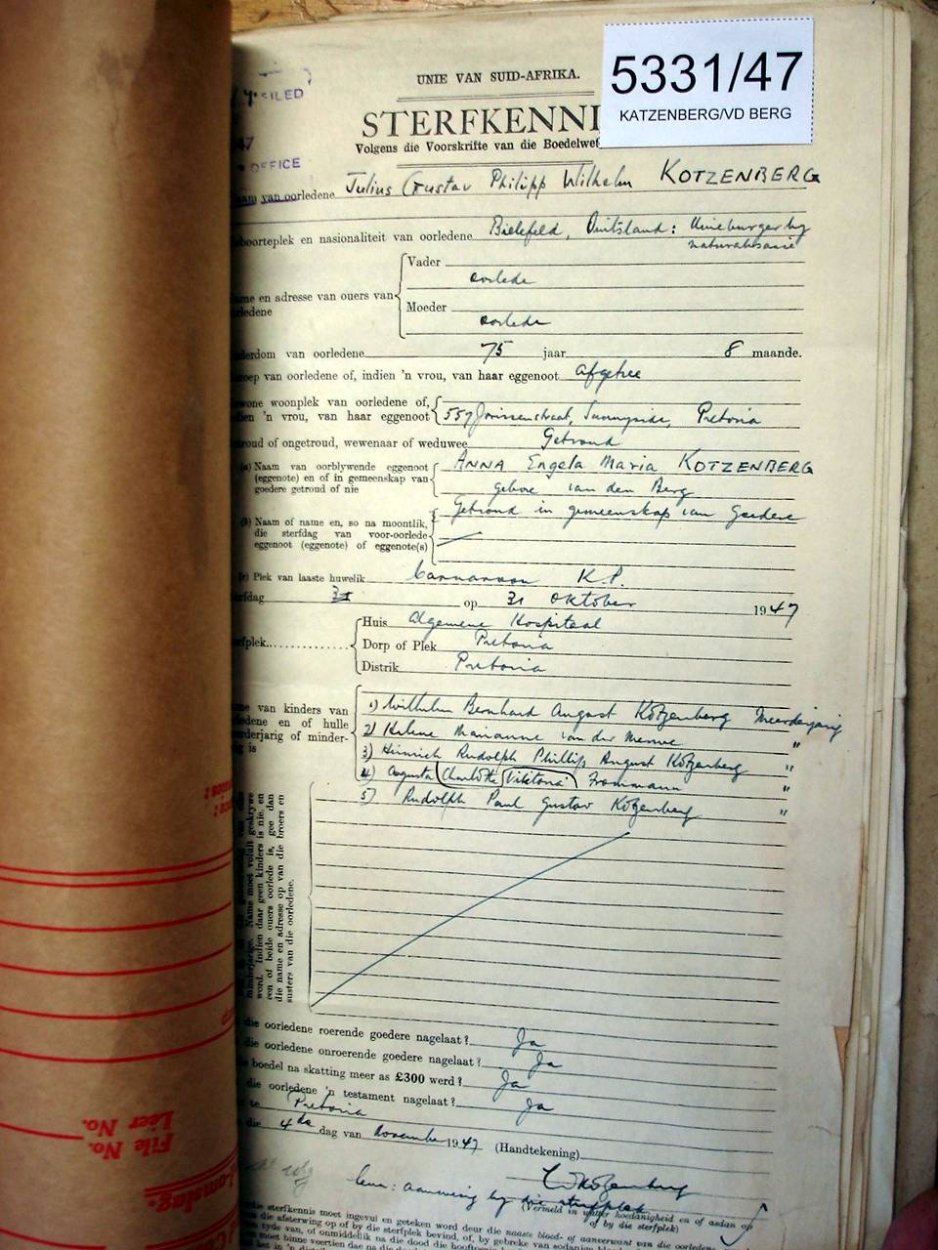 5331/47
KATZENBERG/VD BERG
FILED
47
OFFICE
UNIE VAN SUID-AFRIKA.
STERFKENNI
Volgens die Voorskrifte van die Boedelwet
van oorledene Julius Gustav Philipp Wilhelm KOTZENBERG
boorteplek en nasionaliteit van oorledene Bielefeld, Duitsland: Unieburger by
naturalisasie
Vader
oorlede
me en adresse van ouers van
rledene
Moeder
oorlede
derdom van oorledene 75 jaar 8 maande.
roep van oorledene of, indien 'n vrou, van haar eggenoot Afgetree
wone woonplek van oorledene of,
dien 'n vrou, van haar eggenoot 557 Jorissenstraat, Sunnyside, Pretoria
troud of ongetroud, wewenaar of weduwee Getroud
(a) Naam van oorblywende eggenoot
(eggenote) en of in gemeenskap van
goedere getroud of nie
ANNA Engela Maria KOTZENBERG
gebore van den Berg
Getroud in gemeenskap van Goedere
(b) Naam of name en, so na moontlik,
die sterfdag van voor-oorlede
eggenoot (eggenote) of eggenote(s)
(c) Plek van laaste huwelik Carnarvon K.P.
rfdag 31 op 31 Oktober 1947
rfplek
Huis Algemene Hospitaal
Dorp of Plek Pretoria
Distrik Pretoria
me van kinders van
ledene en of hulle
erderjarig of minder-
ig is
1) Wilhelm Bernhard August Kotzenberg Meerderjarig
2) Helene Marianne van der Merwe "
3) Heinrich Rudolph Phillip August Kotzenberg "
4) Augusta (Charlotte Viktoria) Frommann "
5) Rudolph Paul Gustav Kotzenberg "
minderjarige. Name moet voluit geskrywe
word. Indien daar geen kinders is nie, en
een of beide ouers oorlede is, gee dan
die name en adresse op van die broers en
susters van die oorledene.
die oorledene roerende goedere nagelaat? Ja
die oorledene onroerende goedere nagelaat? Ja
boedel na skatting meer as £300 werd? Ja
die oorledene 'n testament nagelaat? Ja
te Pretoria
die 4de dag van November 1947 (Handtekening)
W Kotzenberg
seun: aanwesig by die sterfplek
(Vermeld in watter hoedanigheid en of aodan op
of by die sterfplek)
die sterfkennis moet ingevul en geteken word deur die naaste bloed- of aanverwant van die oorledene
File No.
Léer No.